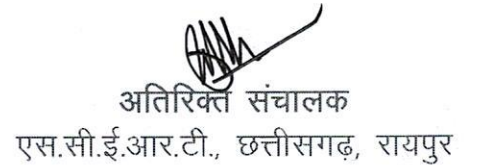 अतिरिक्त संचालक
एस.सी.ई.आर.टी., छत्तीसगढ, रायपुर